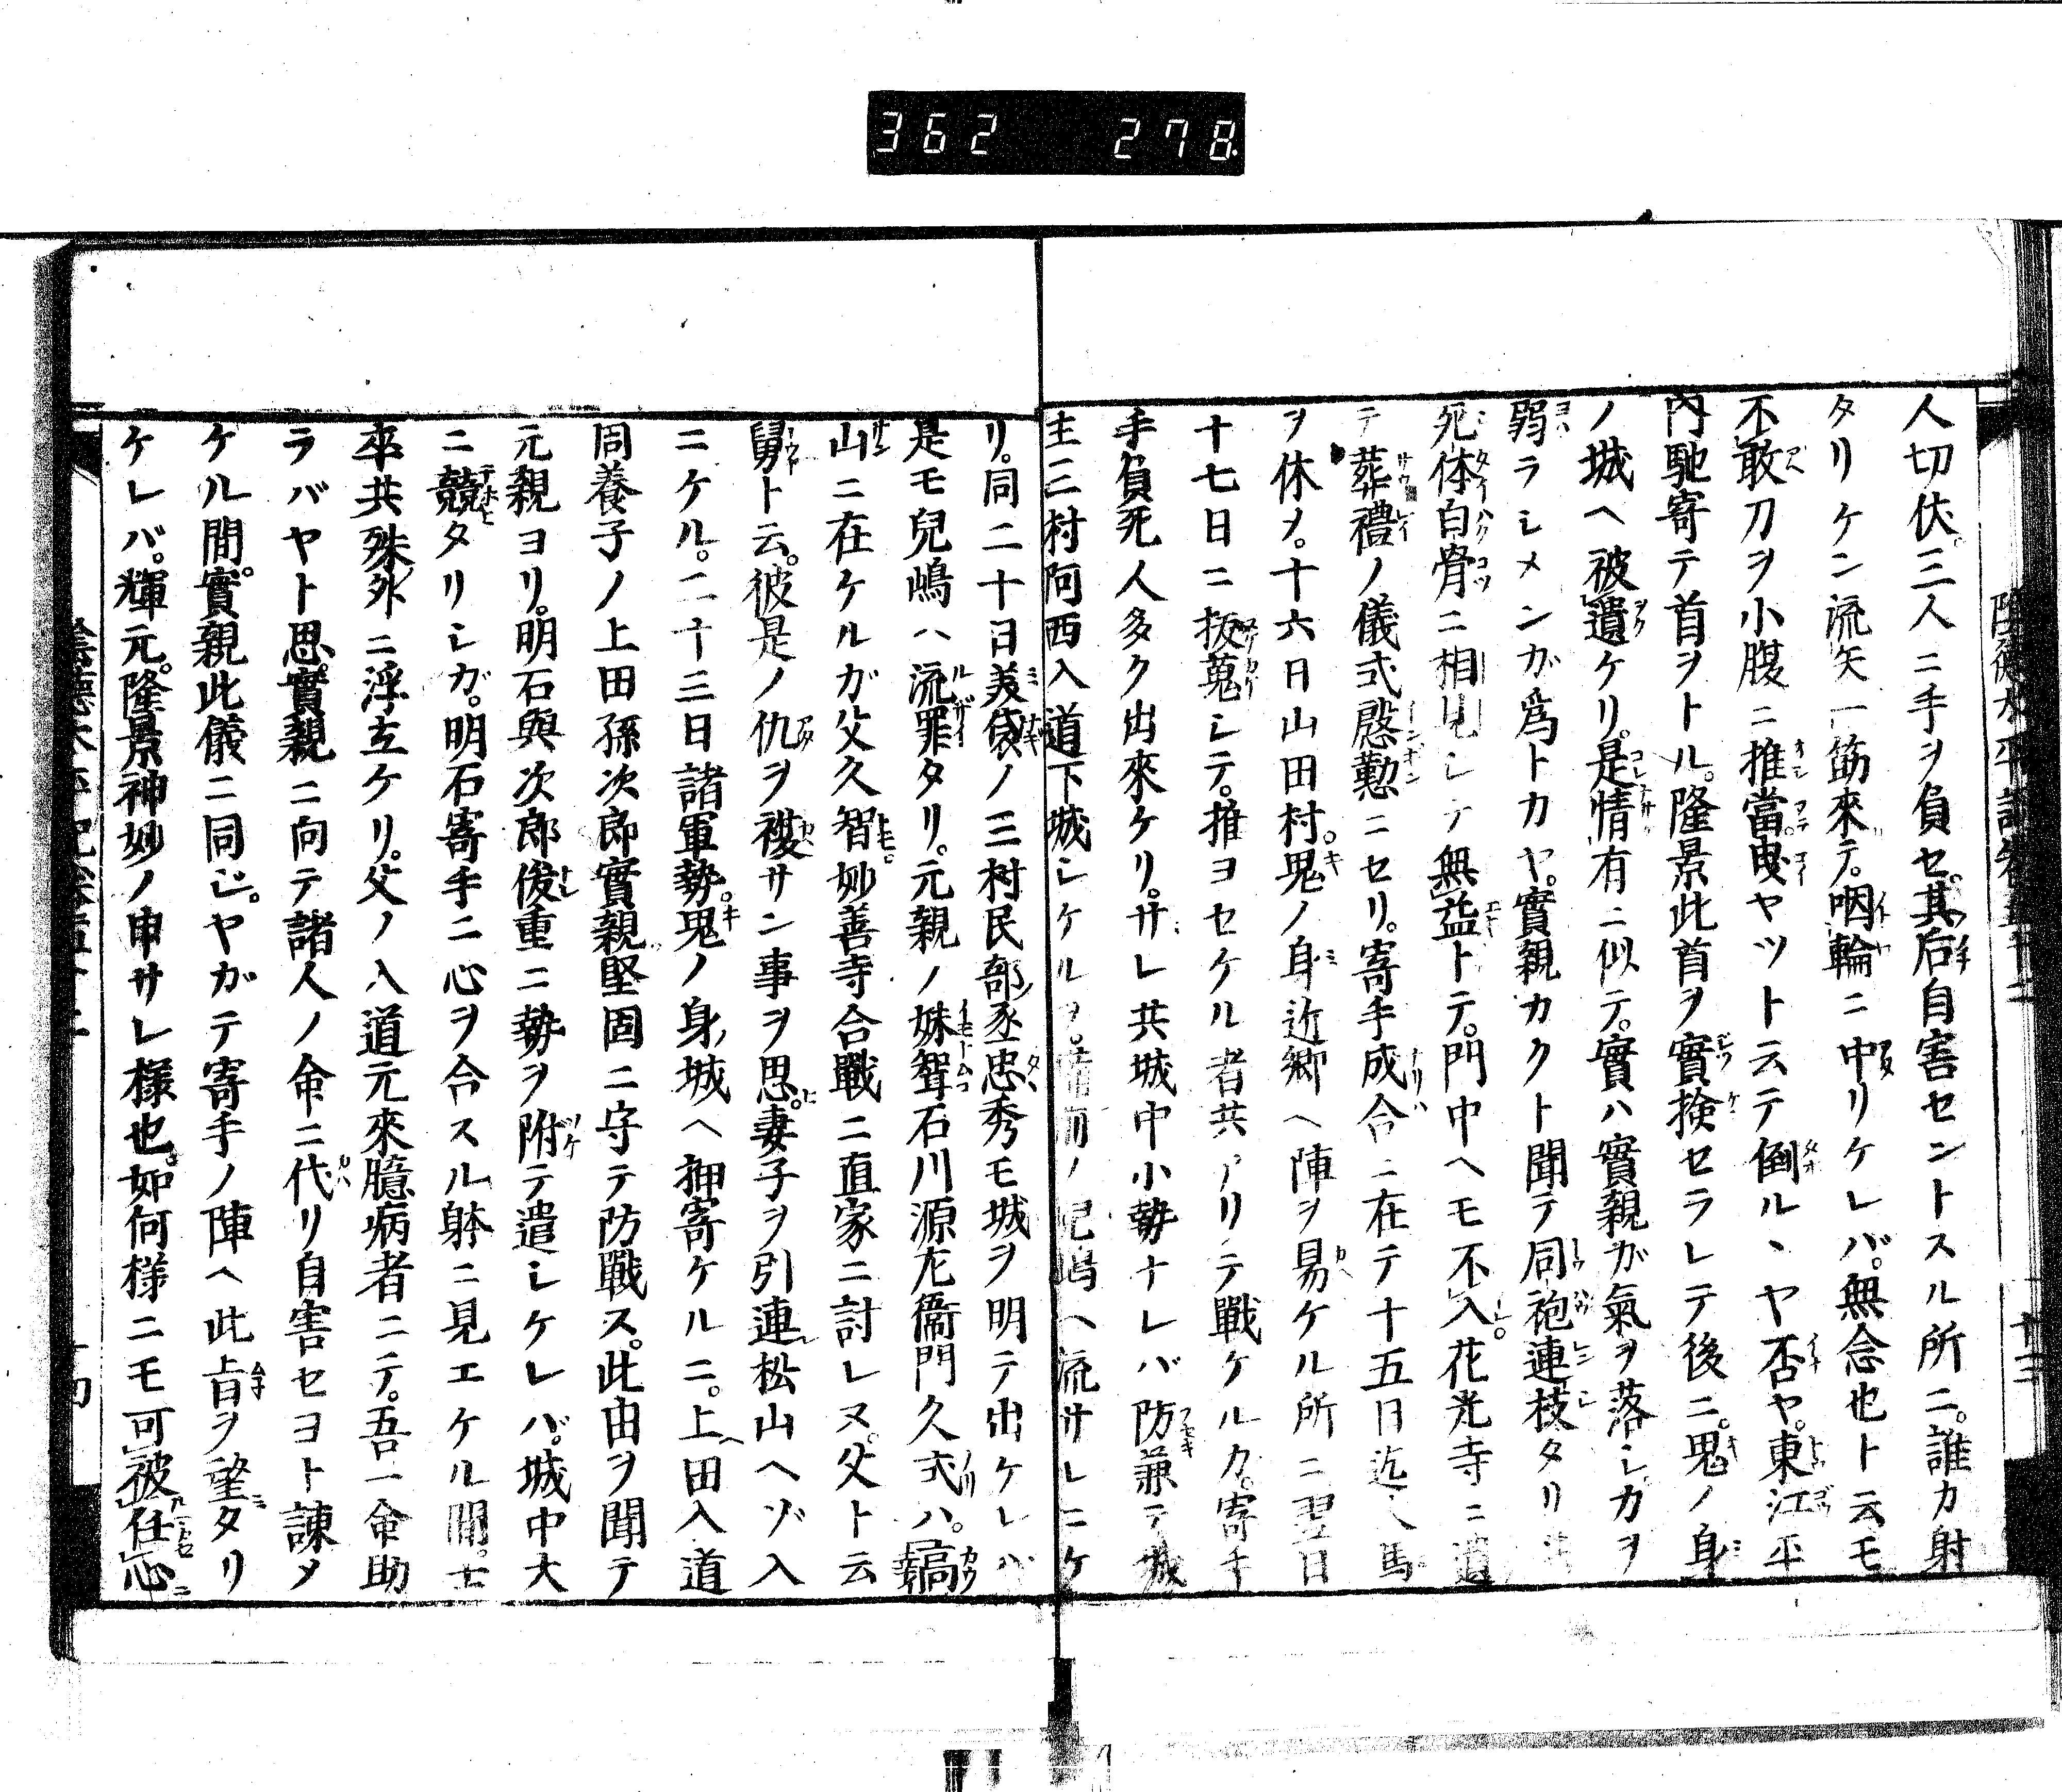 362 278
人切伏。三人ニ手ヲ負セ。其后自害セントスル所ニ。誰カ射
タリケン流矢一筋來テ。咽輪ニ中リケレバ。無念也ト云モ
不敢刀ヲ小腹ニ推當。曳ヤツト云テ倒ルヽヤ否ヤ。東江平
内馳寄テ首ヲトル。隆景此首ヲ實検セラレテ後ニ。鬼ノ身
ノ城ヘ被遣ケリ。是情有ニ似テ。實ハ實親ガ氣ヲ落シ。カヲ
弱ラシメンガ爲トカヤ。實親カクト聞テ同袍連枝タリ
死体白骨ニ相見シテ無益トテ。門中ヘモ不入。花光寺ニ遣
テ葬禮ノ儀式慇懃ニセリ。寄手成合ニ在テ十五日迄人馬
ヲ休メ。十六日山田村。鬼ノ身近郷ヘ陣ヲ易ケル所ニ翌日
十七日ニ抜蒐シテ。推ヨセケル者共アリテ戰ケルカ。寄手
手負死人多ク出來ケリ。サレ共城中小勢ナレバ防兼テ城
主三村阿西入道下城シケルヲ。備前ノ児嶋ヘ流サレニケ
リ。同二十日美袋ノ三村民部丞忠秀モ城ヲ明テ出ケレバ
是モ兒嶋ヘ流罪タリ。元親ノ妹聟石川源左衞門久式ハ。幸
山ニ在ケルガ父久智妙善寺合戰ニ直家ニ討レヌ。父ト云
舅ト云。彼是ノ仇ヲ復サン事ヲ思。妻子ヲ引連松山ヘゾ入
ニケル。二十三日諸軍勢。鬼ノ身城ヘ押寄ケルニ。上田入道
同養子ノ上田孫次郎實親堅固ニ守テ防戰ス。此由ヲ聞テ
元親ヨリ。明石與次郎俊重ニ勢ヲ附テ遣シケレバ。城中大
ニ競タリシガ。明石寄手ニ心ヲ合スル躰ニ見エケル間。士
卒共殊外ニ浮立ケリ。父ノ入道元來臆病者ニテ。吾一命助
ラバヤト思。實親ニ向テ諸人ノ命ニ代リ自害セヨト諌メ
ケル間。實親此儀ニ同ジ。ヤガテ寄手ノ陣ヘ此旨ヲ望タリ
ケレバ。輝元。隆景神妙ノ申サレ様也。如何様ニモ可被任心